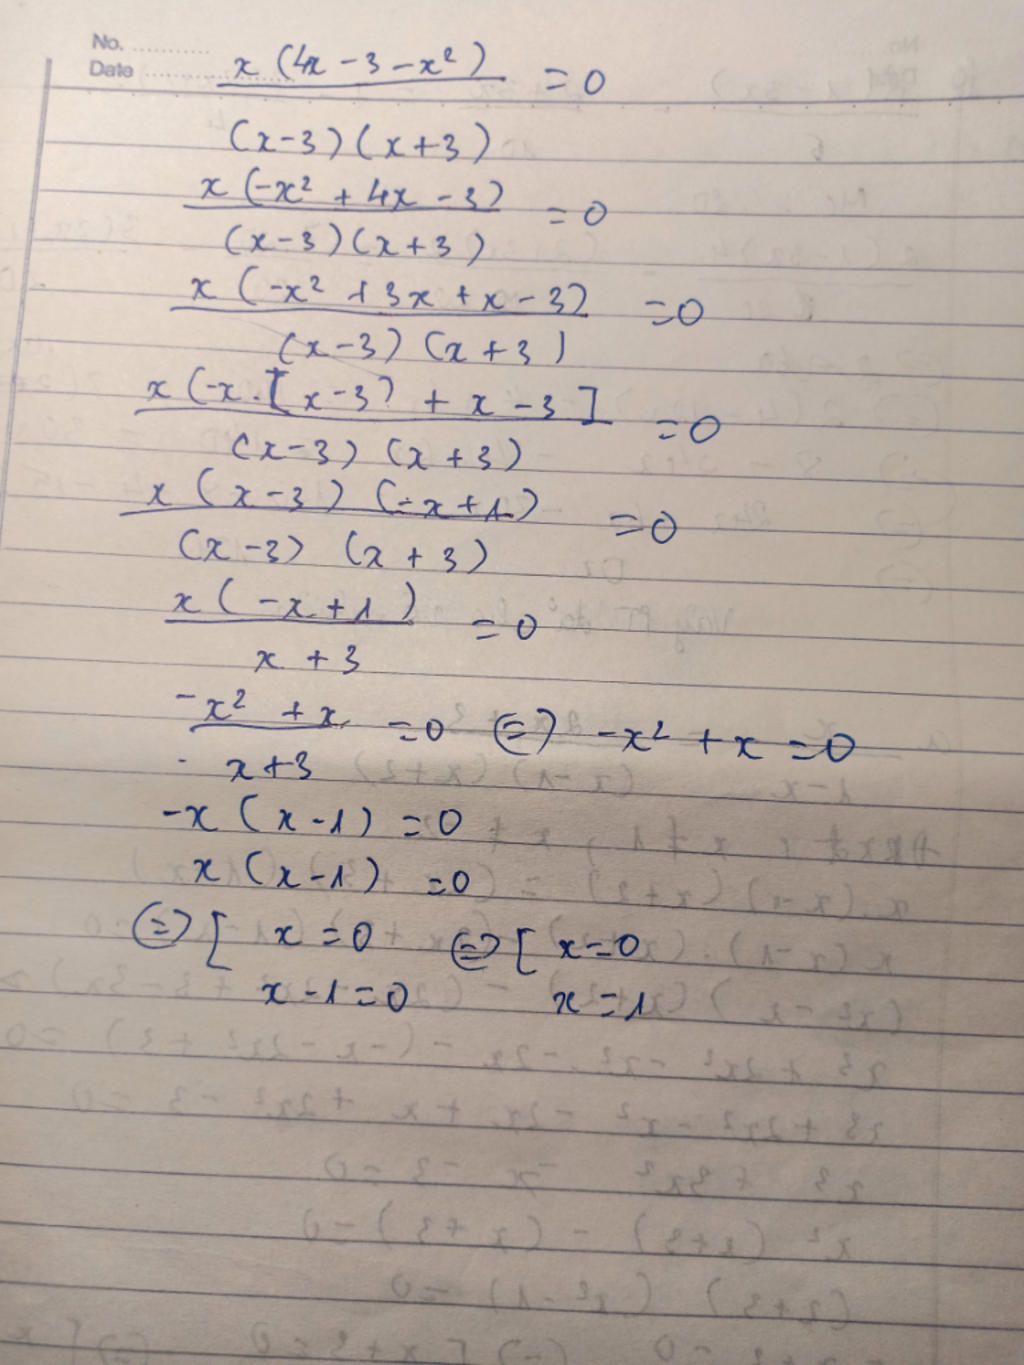 No. ............
Date ............
x (4x - 3 - x²) / (x-3)(x+3) = 0
x (-x² + 4x - 3) / (x-3)(x+3) = 0
x (-x² + 3x + x - 3) / (x-3) (x+3) = 0
x (-x.[x-3) + x - 3] / (x-3) (x+3) = 0
x (x-3) (-x+1) / (x-3) (x+3) = 0
x (-x+1) / x + 3 = 0
-x² + x / x+3 = 0 ⇔ -x² + x = 0
-x (x-1) = 0
x (x-1) = 0
⇔ [ x = 0 ⇔ [ x=0
x-1=0 x=1